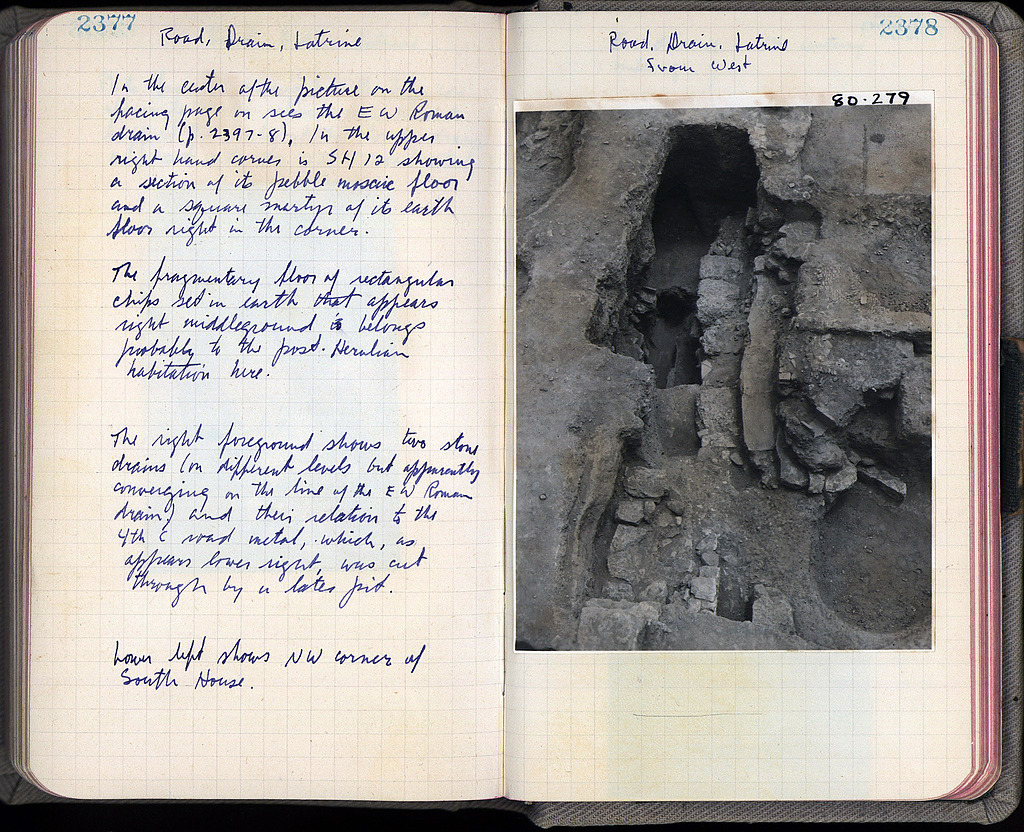 2377
Road, Drain, Latrine
In the center of the picture on the
facing page on sees the E W Roman
drain (p. 2397-8), In the upper
right hand corner is SH 12 showing
a section of its pebble mosaic floor
and a square martyr of its earth
floor right in the corner.
The fragmentary floor of rectangular
chips set in earth that appears
right middleground is belongs
probably to the post-Herulian
habitation here.
The right foreground shows two stone
drains (on different levels but apparently
converging on the line of the E W Roman
drain) and their relation to the
4th C road metal, which, as
appears lower right, was cut
through by a later pit.
Lower left shows NW corner of
South House.
2378
Road, Drain, Latrine
From West
80-279